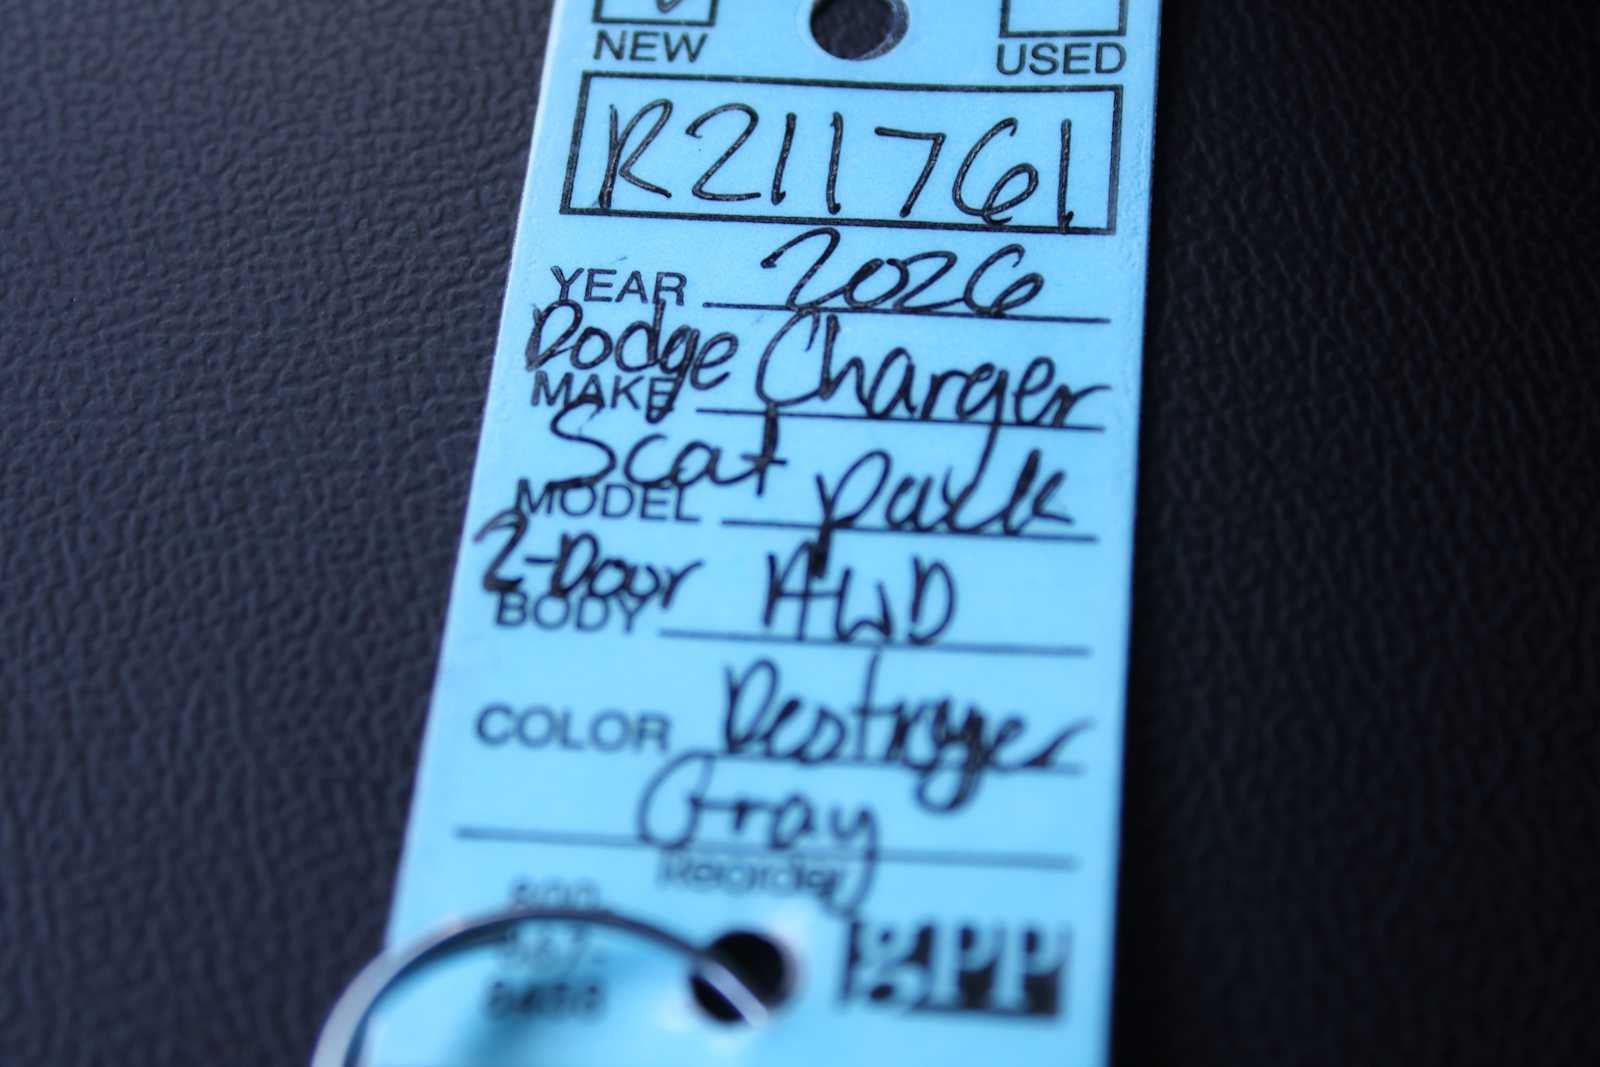 NEW USED
R211761
YEAR 2026
Dodge Charger
MAKE
Scat pack
MODEL
2-Door AWD
BODY
COLOR Destroyer
Gray
Reorder
800